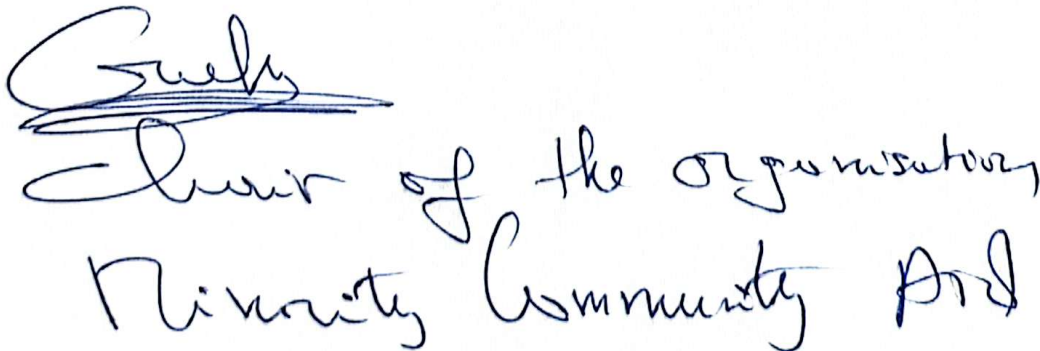 Chair of the organisation
Minority Community Aid